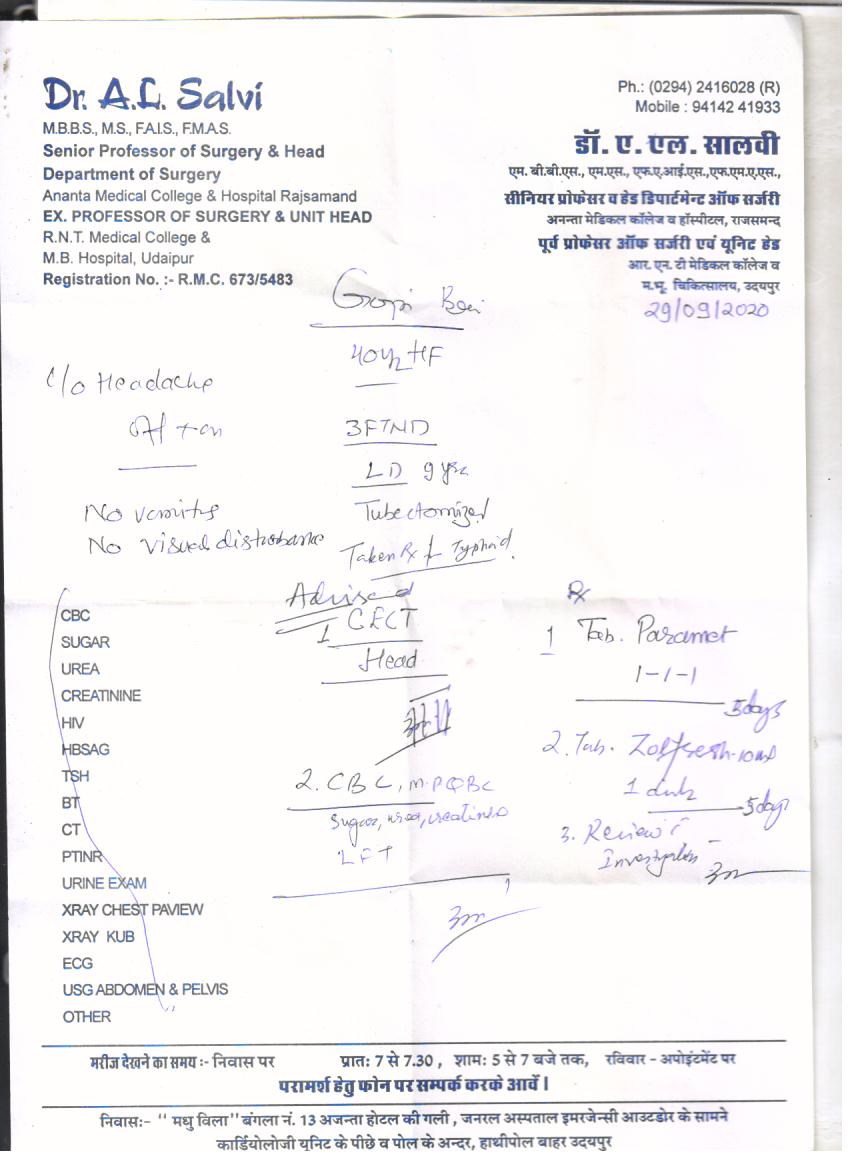 Dr. A.L. Salvi
M.B.B.S., M.S., F.A.I.S., F.M.A.S.
Senior Professor of Surgery & Head
Department of Surgery
Ananta Medical College & Hospital Rajsamand
EX. PROFESSOR OF SURGERY & UNIT HEAD
R.N.T. Medical College &
M.B. Hospital, Udaipur
Registration No. :- R.M.C. 673/5483
Ph.: (0294) 2416028 (R)
Mobile : 94142 41933
डॉ. ए. एल. सालवी
एम. बी.बी.एस., एम.एस., एफ.ए.आई.एस.,एफ.एम.ए.एस.,
सीनियर प्रोफेसर व हेड डिपार्टमेन्ट ऑफ सर्जरी
अनन्ता मेडिकल कॉलेज व हॉस्पीटल, राजसमन्द
पूर्व प्रोफेसर ऑफ सर्जरी एवं यूनिट हेड
आर. एन. टी मेडिकल कॉलेज व
म.भू. चिकित्सालय, उदयपुर
29/09/2020
Gopi Bai
40y HF
C/o Headache
off + on
No vomits
No visual disturbance
3FTND
LD 9 yrs
Tubectomized
Taken Rx f Typhoid.
CBC
SUGAR
UREA
CREATININE
HIV
HBSAG
TSH
BT
CT
PTINR
URINE EXAM
XRAY CHEST PAVIEW
XRAY KUB
ECG
USG ABDOMEN & PELVIS
OTHER
Advised
1 CECT
Head
2. CBC, M.P QBC
Sugar, urea, creatinine
LFT
Rx
1 Tab. Paramet
1-1-1
5days
2. Tab. Zolfresh-10mg
5days
3. Review c̄
Investigation
मरीज देखने का समय :- निवास पर प्रात: 7 से 7.30 , शाम: 5 से 7 बजे तक, रविवार - अपोइंटमेंट पर
परामर्श हेतु फोन पर सम्पर्क करके आवें।
निवास:- " मधु विला" बंगला नं. 13 अजन्ता होटल की गली , जनरल अस्पताल इमरजेन्सी आउटडोर के सामने
कार्डियोलोजी यूनिट के पीछे व पोल के अन्दर, हाथीपोल बाहर उदयपुर